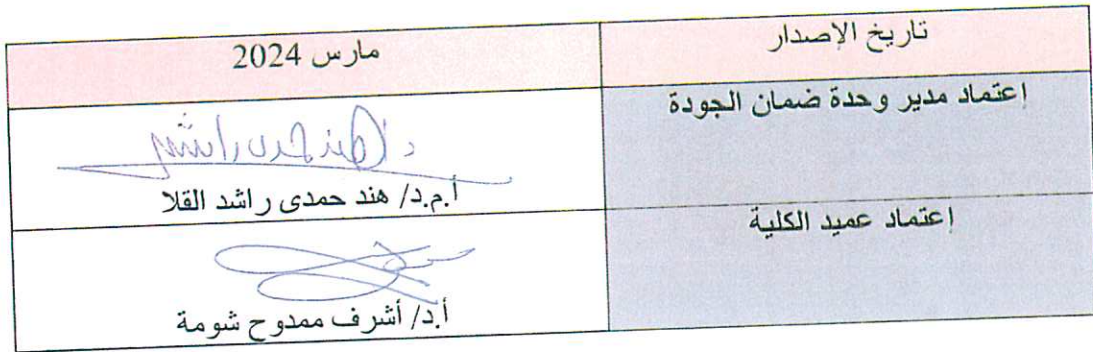 تاريخ الإصدار
مارس 2024
إعتماد مدير وحدة ضمان الجودة
د/ هند حمدى راشد
أ.م.د/ هند حمدى راشد القلا
إعتماد عميد الكلية
أ.د/ أشرف ممدوح شومة